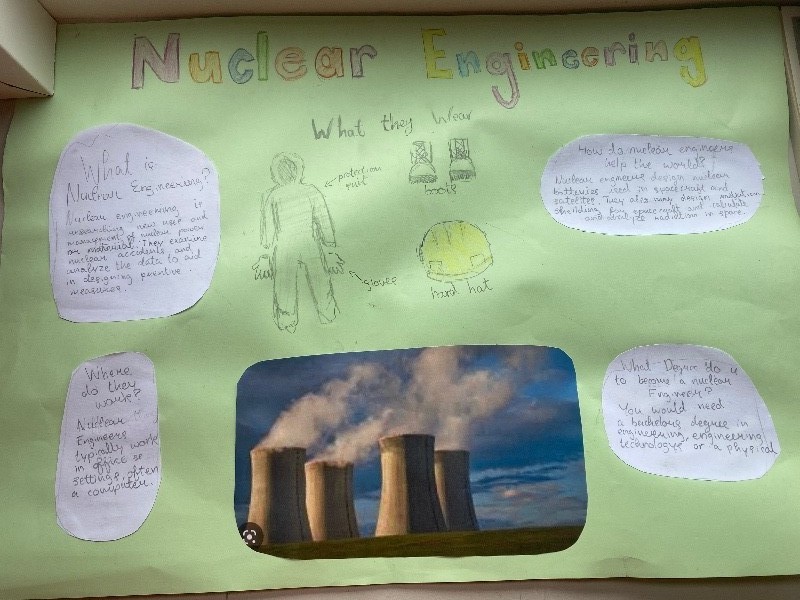 Nuclear Engineering
What they Wear
What is
Nuclear Engineering?
Nuclear engineering is
researching new uses and
management of nuclear power
or material. They examine
nuclear accidents and
analyze the data to aid
in designing
measures.
protection
suit
boots
gloves
hard hat
How do nuclear engineers
help the world?
Nuclear engineers design nuclear
batteries used in spacecraft and
satellites. They also may design radiation
shielding for spacecraft and
and analyze radiation in space.
Where
do they
work?
Nuclear
Engineers
typically work
in office
settings, often
a computer.
What Degree do u
to become a nuclear
Engineer?
You would need
a bachelors degree in
engineering, engineering
technologies or a physical